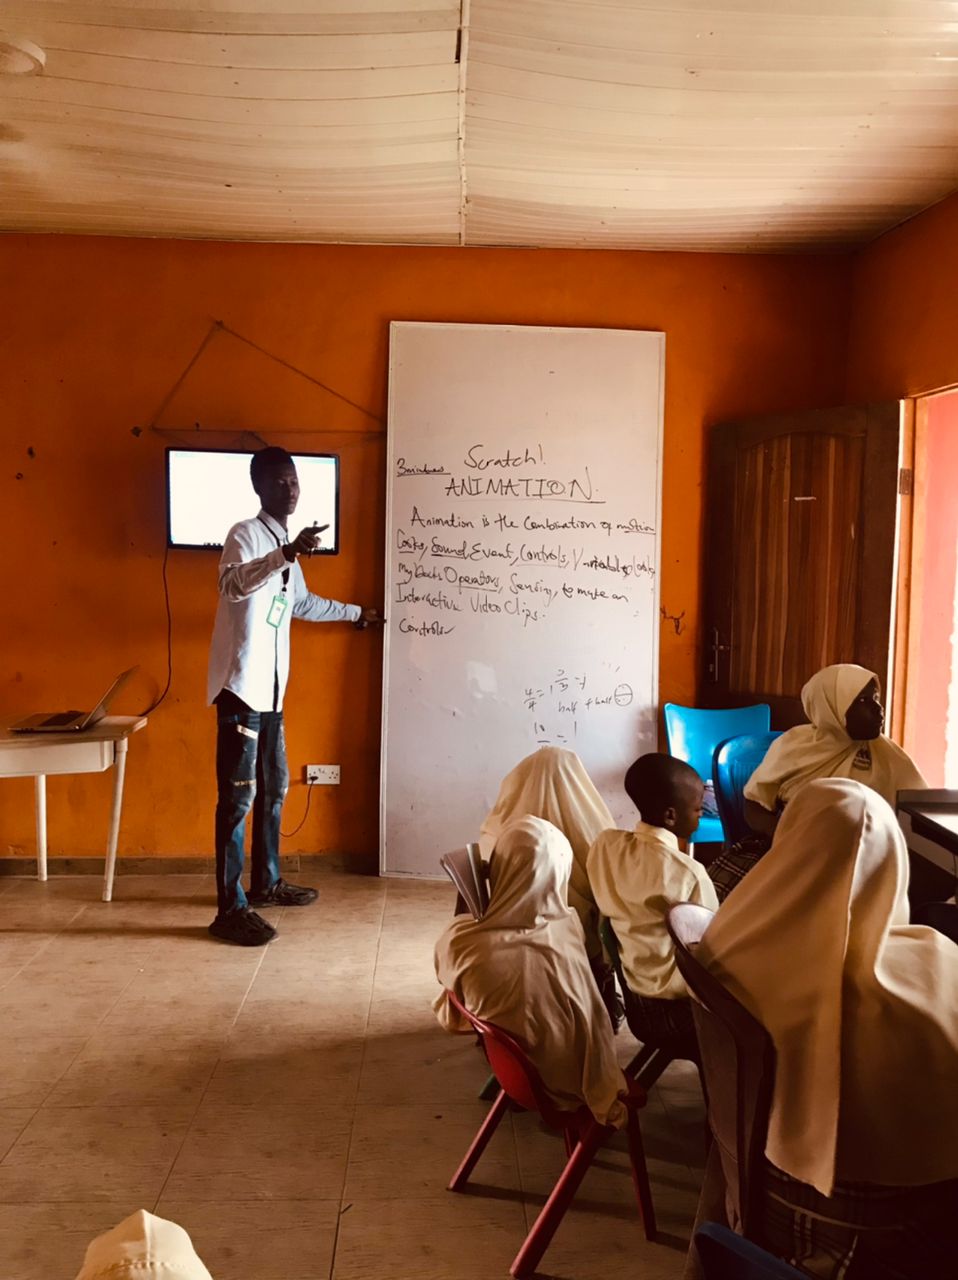 Scratch!
3minutes
ANIMATION
Animation is the Combination of motion
Looks, Sound Event, Controls, Variables
My blocks Operators, Sensing, to make an
Interactive Video Clips.
Controls
3/3 = 1
4/4 = 1 half + half
10 = 1